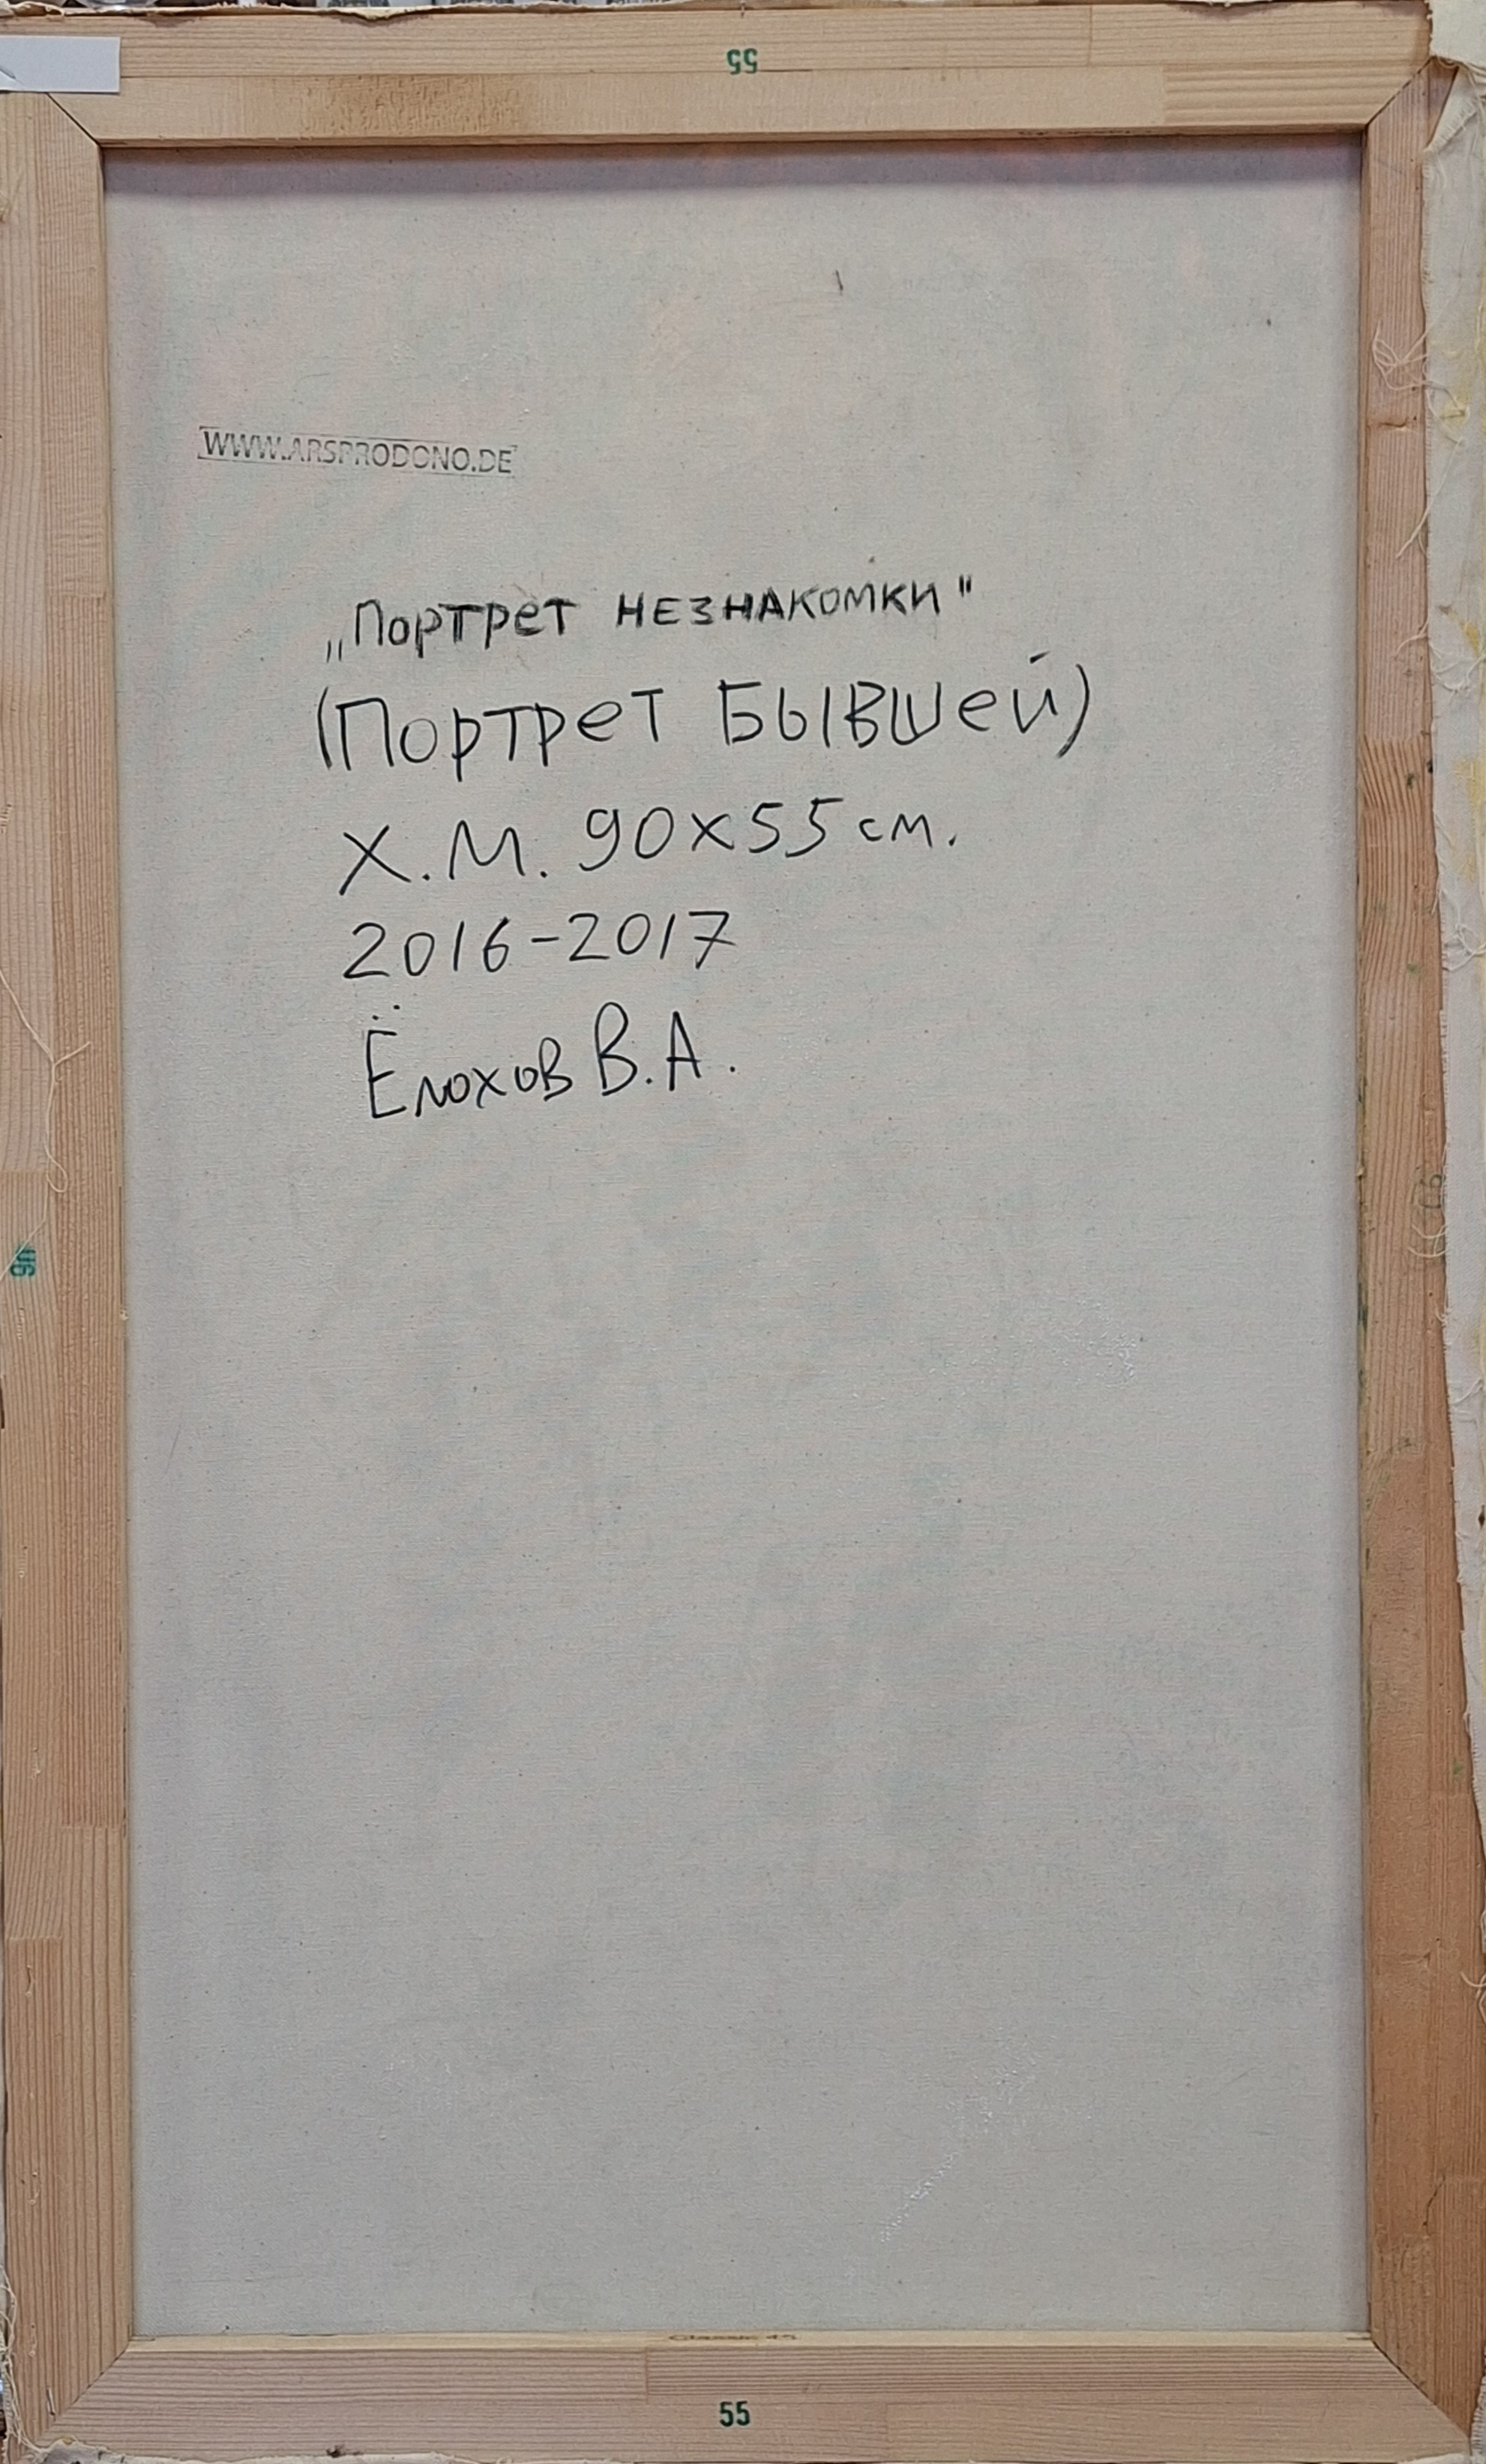 55
WWW.ARSPRODONO.DE
„Портрет незнакомки"
(Портрет Бывшей)
Х.М. 90x55 см.
2016-2017
Ёлохов В.А.
90
Classic 45
55